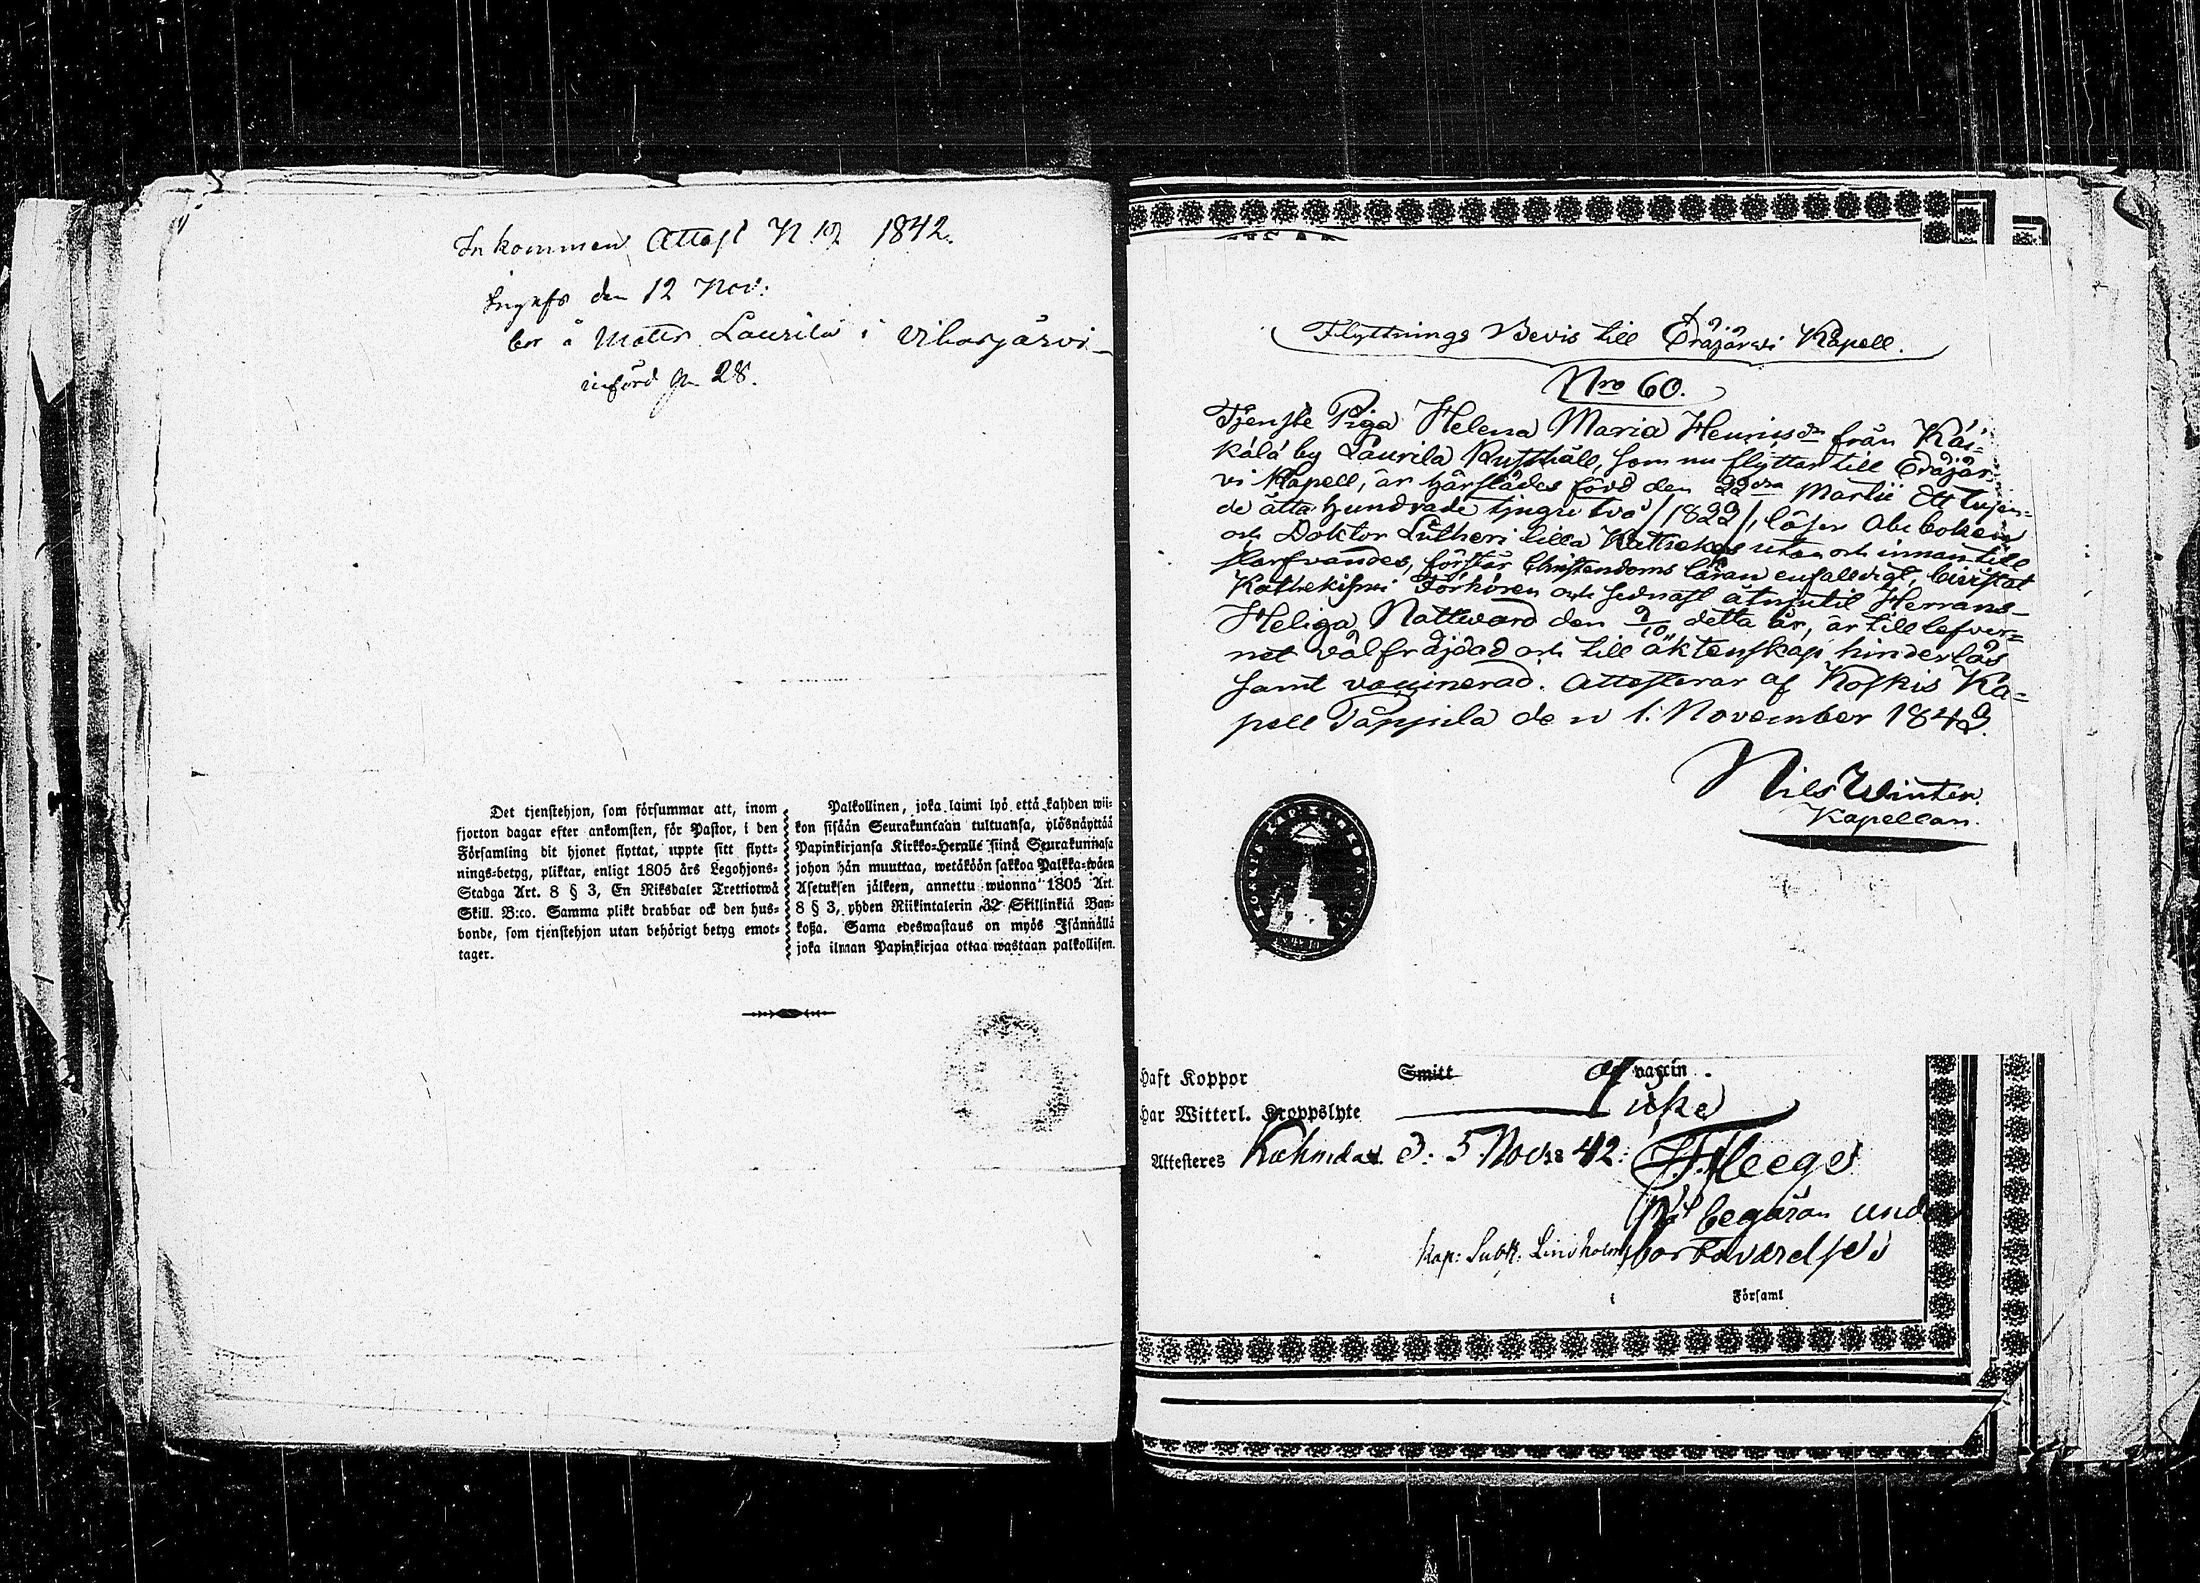 Inkommen Attest N 19 1842.
Ingafs den 12 Nov.
bor å Matts Laurila i Viharjärvi
införd pn 28.
Det tjenstehjon, som försummar att, inom
fjorton dagar efter ankomsten, för Pastor, i den
Församling dit hjonet flyttat, uppte sitt flytt-
nings-betyg, pliktar, enligt 1805 års Legohjons-
Stadga Art. 8 § 3, En Riksdaler Trettiotwå
Skill. B:co. Samma plikt drabbar ock den hus-
bonde, som tjenstehjon utan behörigt betyg emot-
tager.
Palkollinen, joka laimi lyö että kahden wii-
kon sisään Seurakuntaan tultuansa, ylösnäyttää
Papinkirjansa Kirkko-Heralle siinä Seurakunnasa
johon hän muuttaa, wetäköön sakkoa Palkka-wäen
Asetuksen jälkeen, annettu wuonna 1805 Art.
8 § 3, yhden Riikintalerin 32 Skillinkiä Ban-
koßa. Sama edeswastaus on myös Isännällä
joka ilman Papinkirjaa ottaa wastaan palkollisen.
Flyttnings Bevis till Eräjärwi Kapell.
Nro 60.
Tjenste Piga Helena Maria Henricsdr från Käi-
kälä by Laurila Rusthåll, som nu flyttar till Eräjär-
vi Kapell, är härstädes född den 22dra Martii Ett tusen-
de åtta hundrade tjugu två /1822/, läser Abc boken
och Doktor Lutheri lilla Kathekes utan och innantill
förstår Christendoms läran enfaldigt, bivistat
Kathekismi Förhören och sednast åtnjutit Herrans
Heliga Nattward den 9/10 detta år, är till lefver-
net välfräjdad och till äktenskap hinderlös
samt vaccinerad. Attesterar af Koskis Ka-
pell Täppilä den 1. November 1842.
Nils Winter.
Kapellan.
Haft Koppor Smitt af vaccin.
Har Witterl. Kroppslyte Icke
Attesteres d. 5 Nov. 42.
På begäran under
Kap: Lindholms
i Församl